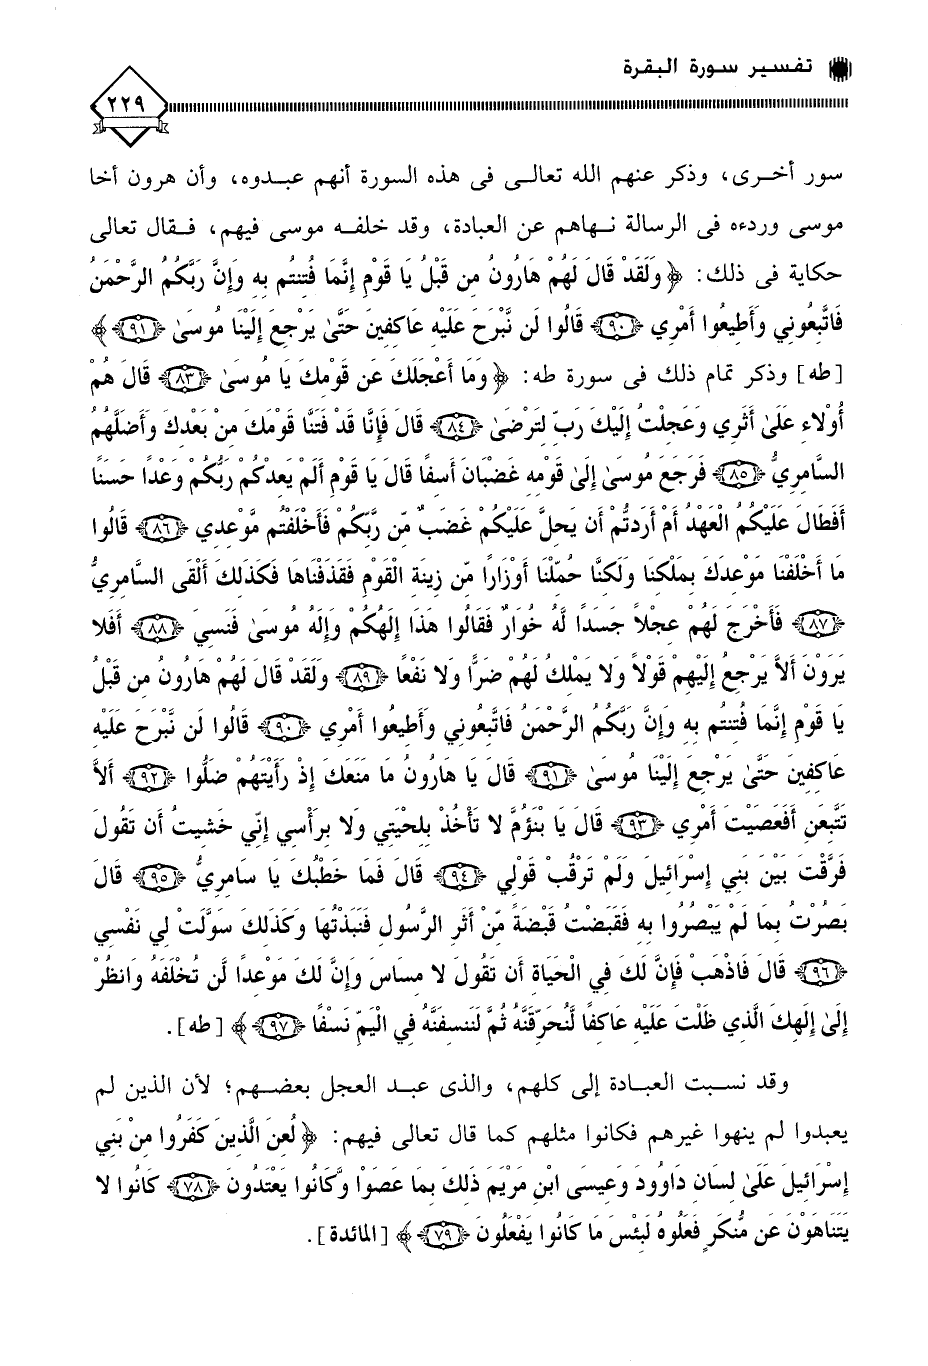 تفسير سورة البقرة
٢٢٩
سور أخرى، وذكر عنهم الله تعالى فى هذه السورة أنهم عبدوه، وأن هرون أخا
موسى وردءه فى الرسالة نهاهم عن العبادة، وقد خلفه موسى فيهم، فقال تعالى
حكاية فى ذلك: ﴿ وَلَقَدْ قَالَ لَهُمْ هَارُونُ مِن قَبْلُ يَا قَوْمِ إِنَّمَا فُتِنتُم بِهِ وَإِنَّ رَبَّكُمُ الرَّحْمَنُ
فَاتَّبِعُونِي وَأَطِيعُوا أَمْرِي ﴿٩٠﴾ قَالُوا لَن نَّبْرَحَ عَلَيْهِ عَاكِفِينَ حَتَّىٰ يَرْجِعَ إِلَيْنَا مُوسَىٰ ﴿٩١﴾ ﴾
[طه] وذكر تمام ذلك فى سورة طه: ﴿ وَمَا أَعْجَلَكَ عَن قَوْمِكَ يَا مُوسَىٰ ﴿٨٣﴾ قَالَ هُمْ
أُوْلاءِ عَلَىٰ أَثَرِي وَعَجِلْتُ إِلَيْكَ رَبِّ لِتَرْضَىٰ ﴿٨٤﴾ قَالَ فَإِنَّا قَدْ فَتَنَّا قَوْمَكَ مِنْ بَعْدِكَ وَأَضَلَّهُمُ
السَّامِرِيُّ ﴿٨٥﴾ فَرَجَعَ مُوسَىٰ إِلَىٰ قَوْمِهِ غَضْبَانَ أَسِفًا قَالَ يَا قَوْمِ أَلَمْ يَعِدْكُمْ رَبُّكُمْ وَعْدًا حَسَنًا
أَفَطَالَ عَلَيْكُمُ الْعَهْدُ أَمْ أَرَدتُّمْ أَن يَحِلَّ عَلَيْكُمْ غَضَبٌ مِّن رَّبِّكُمْ فَأَخْلَفْتُم مَّوْعِدِي ﴿٨٦﴾ قَالُوا
مَا أَخْلَفْنَا مَوْعِدَكَ بِمَلْكِنَا وَلَكِنَّا حُمِّلْنَا أَوْزَارًا مِّن زِينَةِ الْقَوْمِ فَقَذَفْنَاهَا فَكَذَلِكَ أَلْقَى السَّامِرِيُّ
﴿٨٧﴾ فَأَخْرَجَ لَهُمْ عِجْلاً جَسَدًا لَّهُ خُوَارٌ فَقَالُوا هَذَا إِلَهُكُمْ وَإِلَهُ مُوسَىٰ فَنَسِيَ ﴿٨٨﴾ أَفَلا
يَرَوْنَ أَلاَّ يَرْجِعُ إِلَيْهِمْ قَوْلاً وَلا يَمْلِكُ لَهُمْ ضَرًّا وَلا نَفْعًا ﴿٨٩﴾ وَلَقَدْ قَالَ لَهُمْ هَارُونُ مِن قَبْلُ
يَا قَوْمِ إِنَّمَا فُتِنتُم بِهِ وَإِنَّ رَبَّكُمُ الرَّحْمَنُ فَاتَّبِعُونِي وَأَطِيعُوا أَمْرِي ﴿٩٠﴾ قَالُوا لَن نَّبْرَحَ عَلَيْهِ
عَاكِفِينَ حَتَّىٰ يَرْجِعَ إِلَيْنَا مُوسَىٰ ﴿٩١﴾ قَالَ يَا هَارُونُ مَا مَنَعَكَ إِذْ رَأَيْتَهُمْ ضَلُّوا ﴿٩٢﴾ أَلاَّ
تَتَّبِعَنِ أَفَعَصَيْتَ أَمْرِي ﴿٩٣﴾ قَالَ يَا بْنَؤُمَّ لا تَأْخُذْ بِلِحْيَتِي وَلا بِرَأْسِي إِنِّي خَشِيتُ أَن تَقُولَ
فَرَّقْتَ بَيْنَ بَنِي إِسْرَائِيلَ وَلَمْ تَرْقُبْ قَوْلِي ﴿٩٤﴾ قَالَ فَمَا خَطْبُكَ يَا سَامِرِيُّ ﴿٩٥﴾ قَالَ
بَصُرْتُ بِمَا لَمْ يَبْصُرُوا بِهِ فَقَبَضْتُ قَبْضَةً مِّنْ أَثَرِ الرَّسُولِ فَنَبَذْتُهَا وَكَذَلِكَ سَوَّلَتْ لِي نَفْسِي
﴿٩٦﴾ قَالَ فَاذْهَبْ فَإِنَّ لَكَ فِي الْحَيَاةِ أَن تَقُولَ لا مِسَاسَ وَإِنَّ لَكَ مَوْعِدًا لَّن تُخْلَفَهُ وَانظُرْ
إِلَىٰ إِلَهِكَ الَّذِي ظَلْتَ عَلَيْهِ عَاكِفًا لَّنُحَرِّقَنَّهُ ثُمَّ لَنَنسِفَنَّهُ فِي الْيَمِّ نَسْفًا ﴿٩٧﴾ ﴾ [طه].
وقد نسبت العبادة إلى كلهم، والذى عبد العجل بعضهم؛ لأن الذين لم
يعبدوا لم ينهوا غيرهم فكانوا مثلهم كما قال تعالى فيهم: ﴿ لُعِنَ الَّذِينَ كَفَرُوا مِنْ بَنِي
إِسْرَائِيلَ عَلَىٰ لِسَانِ دَاوُودَ وَعِيسَى ابْنِ مَرْيَمَ ذَلِكَ بِمَا عَصَوْا وَّكَانُوا يَعْتَدُونَ ﴿٧٨﴾ كَانُوا لا
يَتَنَاهَوْنَ عَن مُّنكَرٍ فَعَلُوهُ لَبِئْسَ مَا كَانُوا يَفْعَلُونَ ﴿٧٩﴾ ﴾ [المائدة].